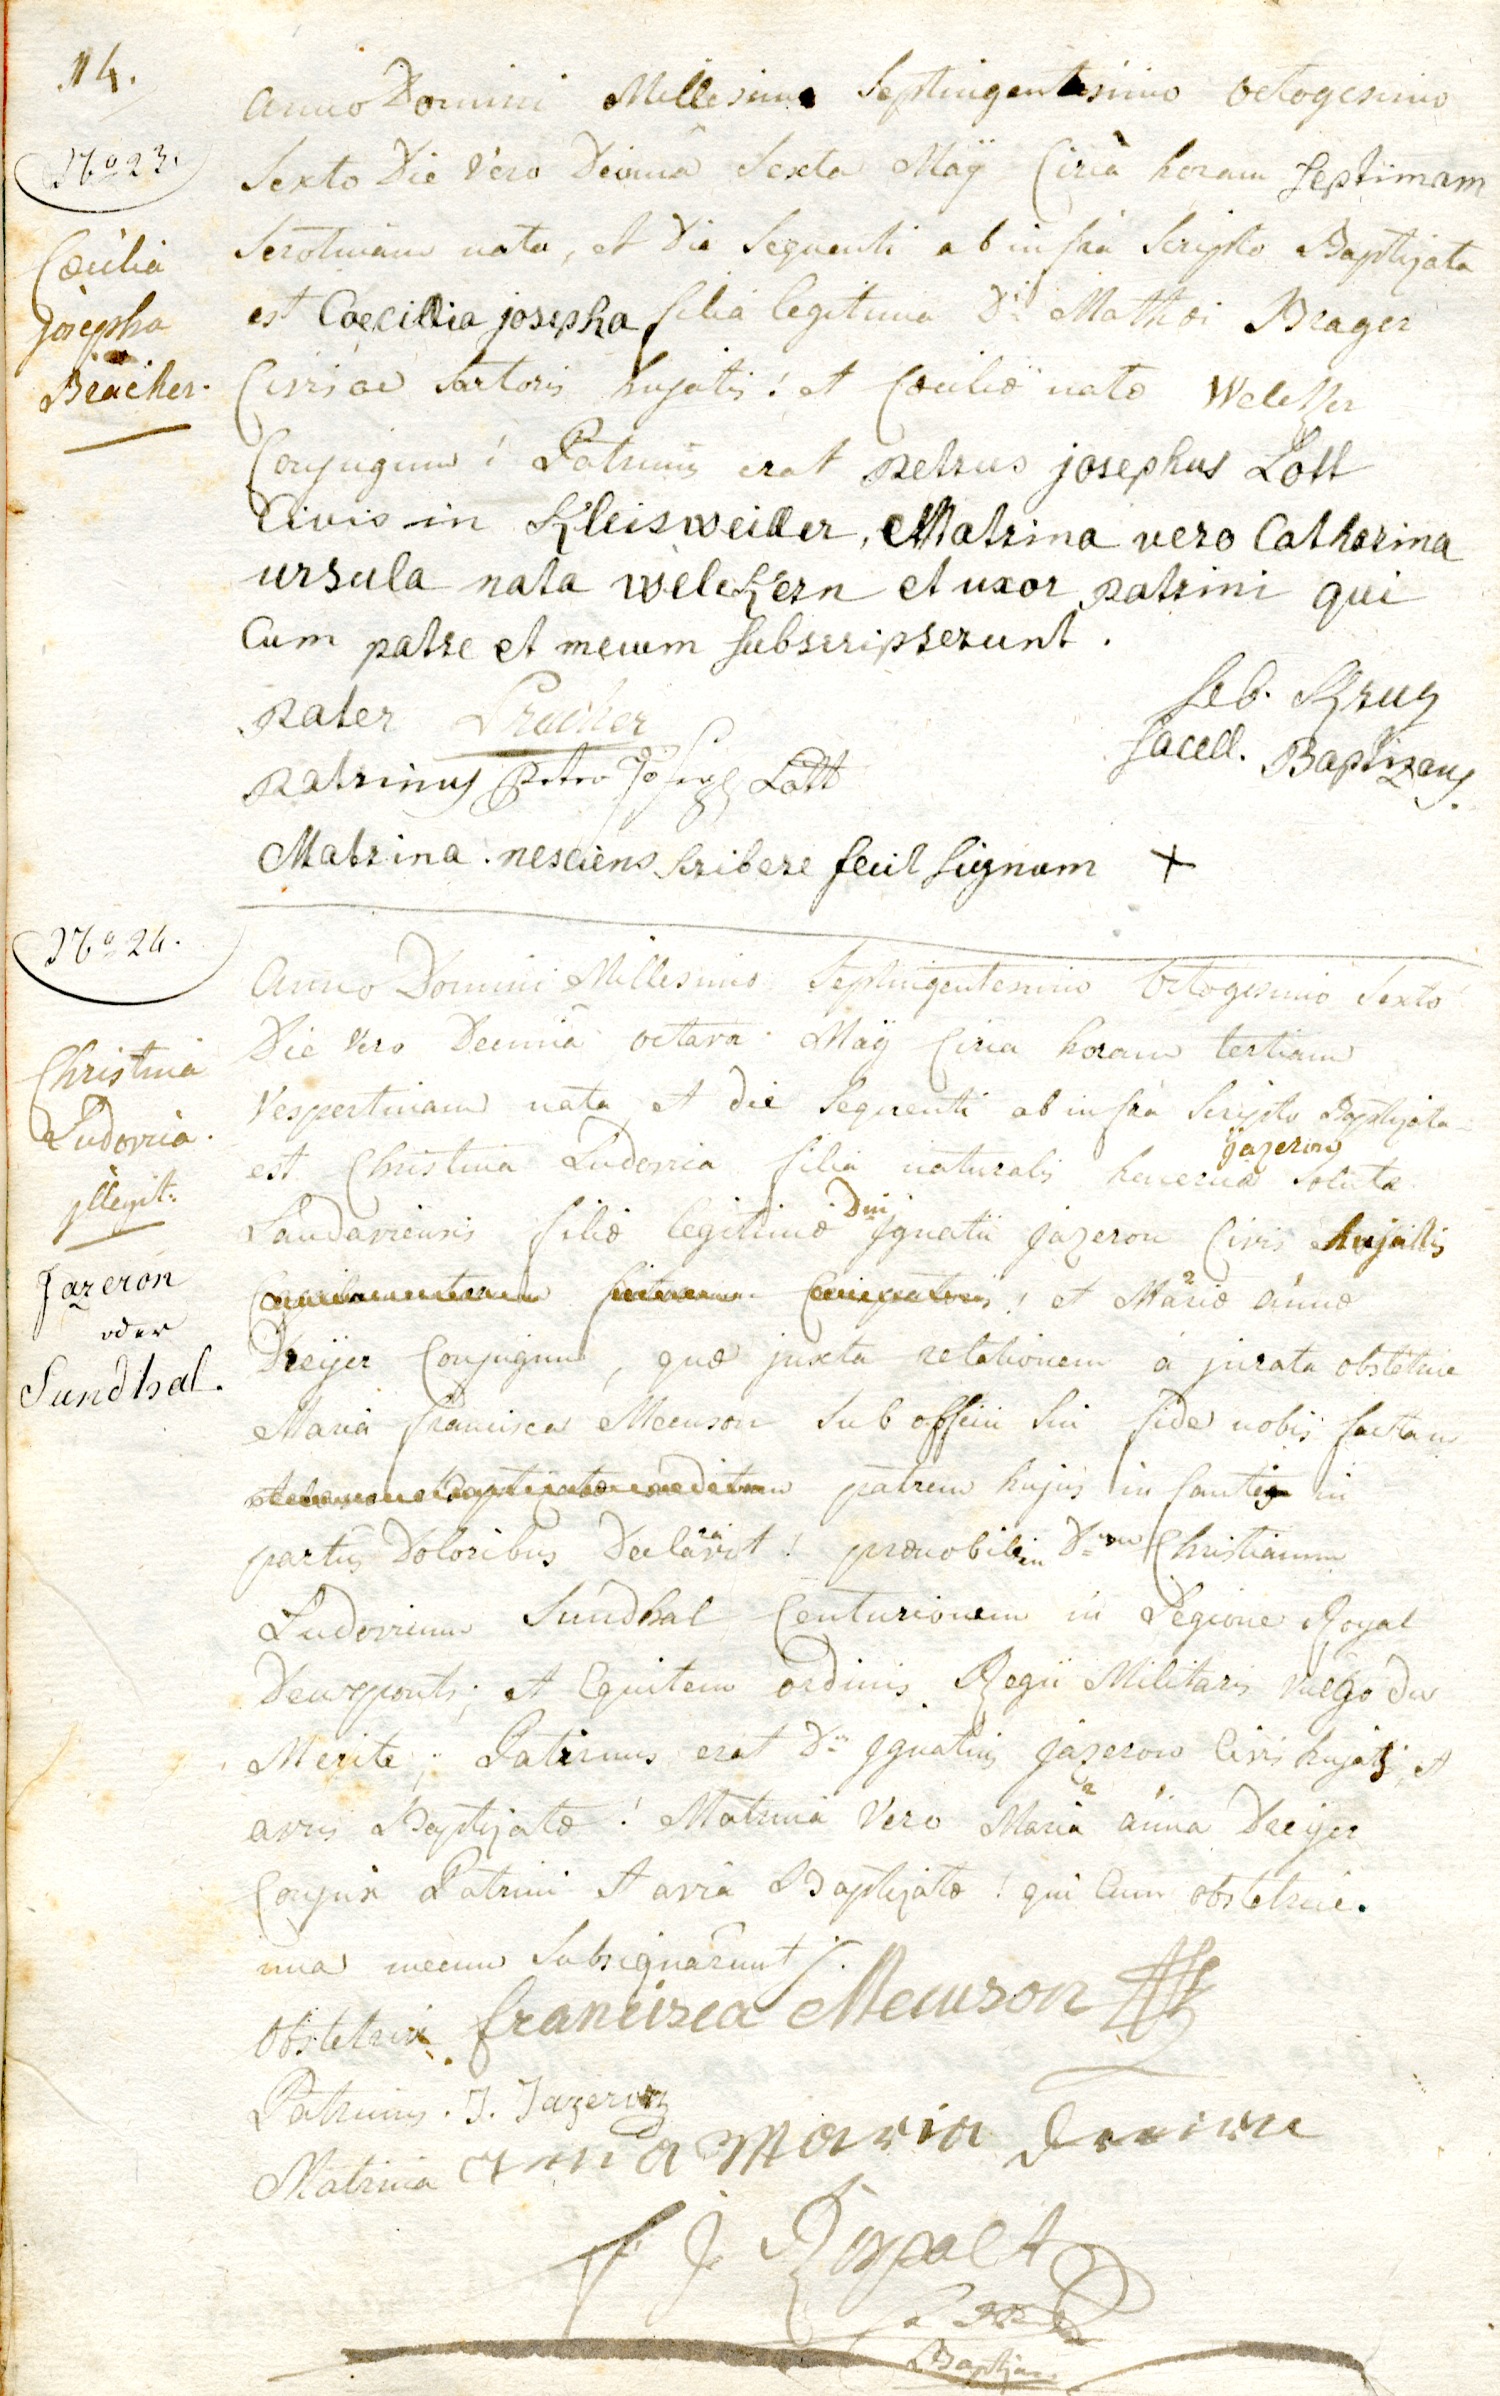 14.
No 23.
Cæcilia
Josepha
Bracher.
Anno Domini Millesimo Septingentesimo octogesimo
Sexto Die Vero Decima Sexta Maÿ Circa horam Septimam
Serotinam nata, et Die Sequenti ab infra Scripto Baptizata
est Caecillia josepha filia legitima Di Mathæi Brager
Civis ac Sartoris hujatis! et Cæciliæ natæ Welcker
Conjugum! Patrinus erat petrus josephus Lott
Civis in Kleisweiller, Matrina vero Catharina
ursula nata welckern et uxor patrini qui
Cum patre et mecum subscripserunt.
pater Bracher
Seb. Krug
Sacell. Baptizans.
patrinus Peter Joseph Lott
Matrina nesciens scribere fecit signum +
No 24.
Christina
Ludovica.
jllegit:
Jazeron
oder
Sundhal.
Anno Domini Millesimo Septingentesimo Octogesimo Sexto
Die Vero Decima octava Maÿ Circa horam tertiam
Vespertinam nata et die Sequenti ab infra Scripto Baptizata
est Christina Ludovica filia naturalis Jazeron solutæ
Landaviensis filiæ legitimæ Dni Jgnatii Jazeron Civis hujatis
! et Mariæ annæ
Dreÿer Conjugum, quæ juxta relationem à jurata obstetrice
Maria francisca Meurson Sub officii Sui fide nobis factam
patrem hujus infantis in
partus Doloribus Declaravit! prænobilem Dnum Christianum
Ludovicum Sundhal Centurionem in Legione Royal
Deuxponts; et Equitem ordinis Regii Militaris vulgo du
Merite; Patrinus erat Dnus Jgnatius Jazeron Civis hujatis, et
avus Baptizatæ! Matrina Vero Maria anna Dreÿer
Conjux Patrini et avia Baptizatæ! qui Cum obstetrice.
una mecum Subsignarunt.
obstetrix francisca Meurson
Patrinus. J. Jazeron
Matrina anna Maria
Baptizans